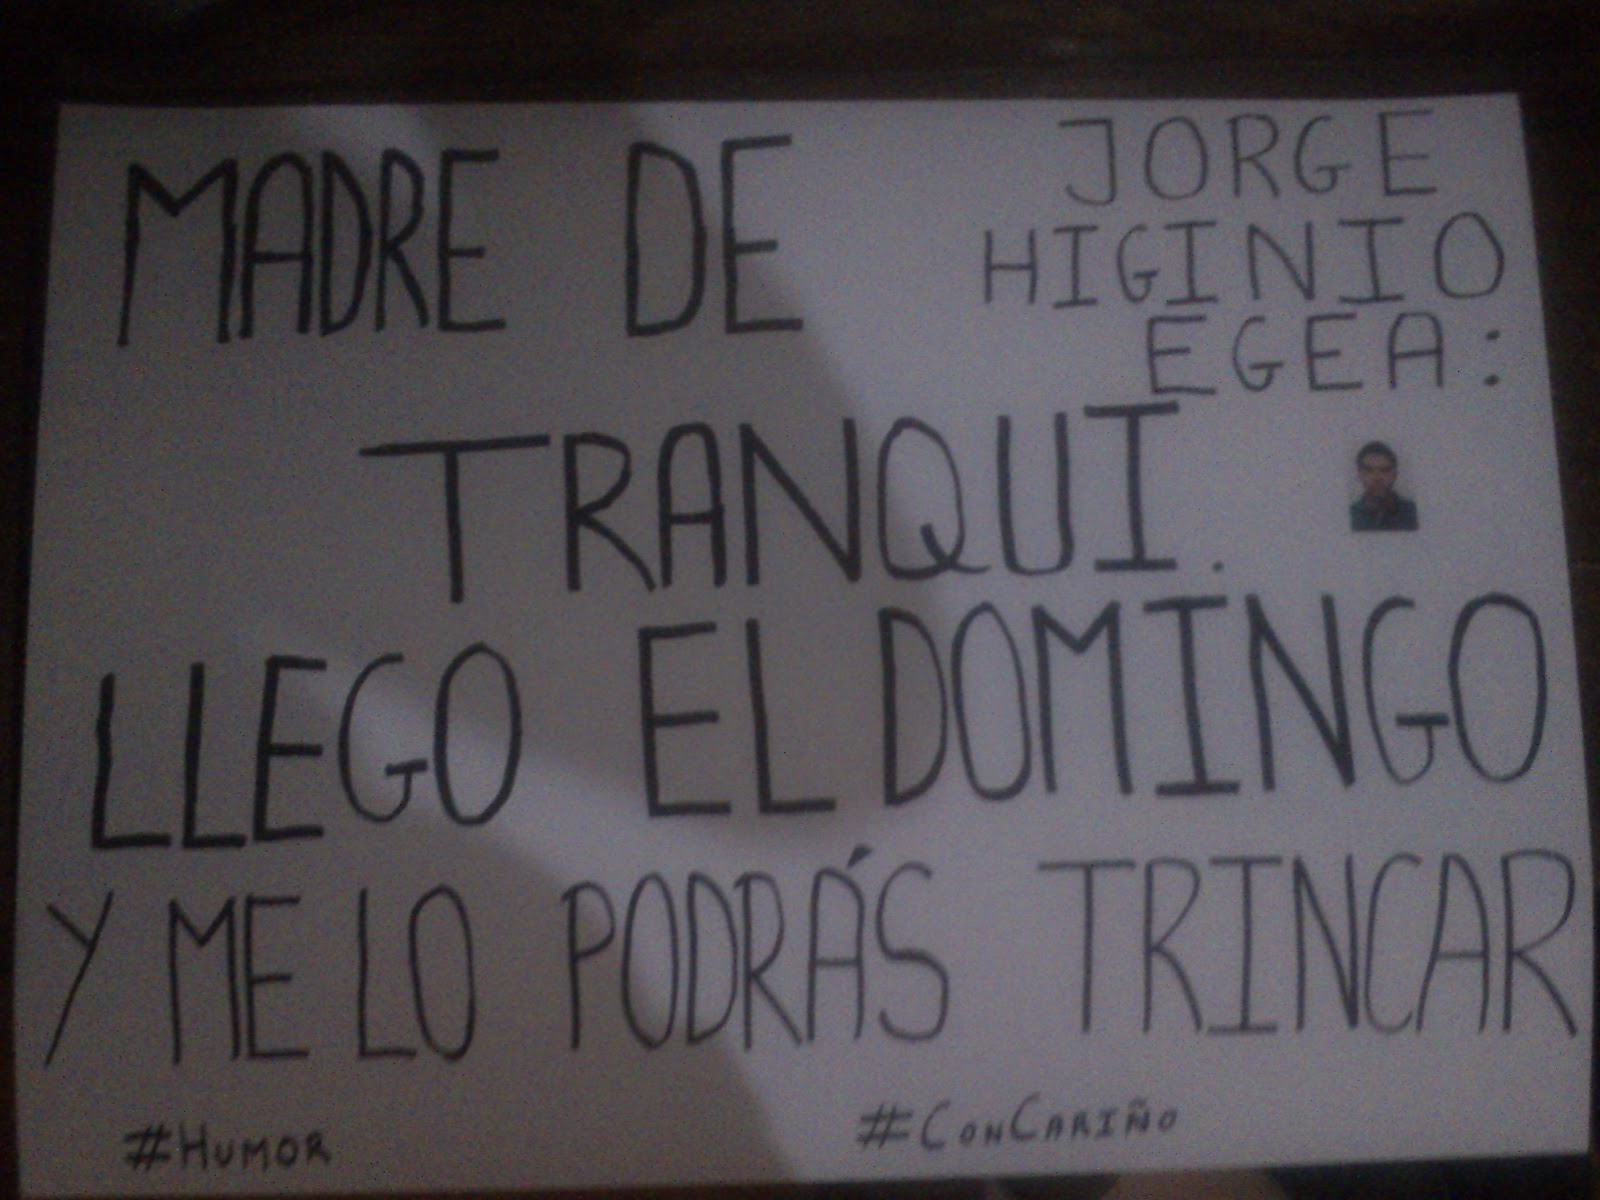 MADRE DE JORGE
HIGINIO
EGEA:
TRANQUI.
LLEGO EL DOMINGO
Y ME LO PODRÁS TRINCAR
#HUMOR #CONCARIÑO